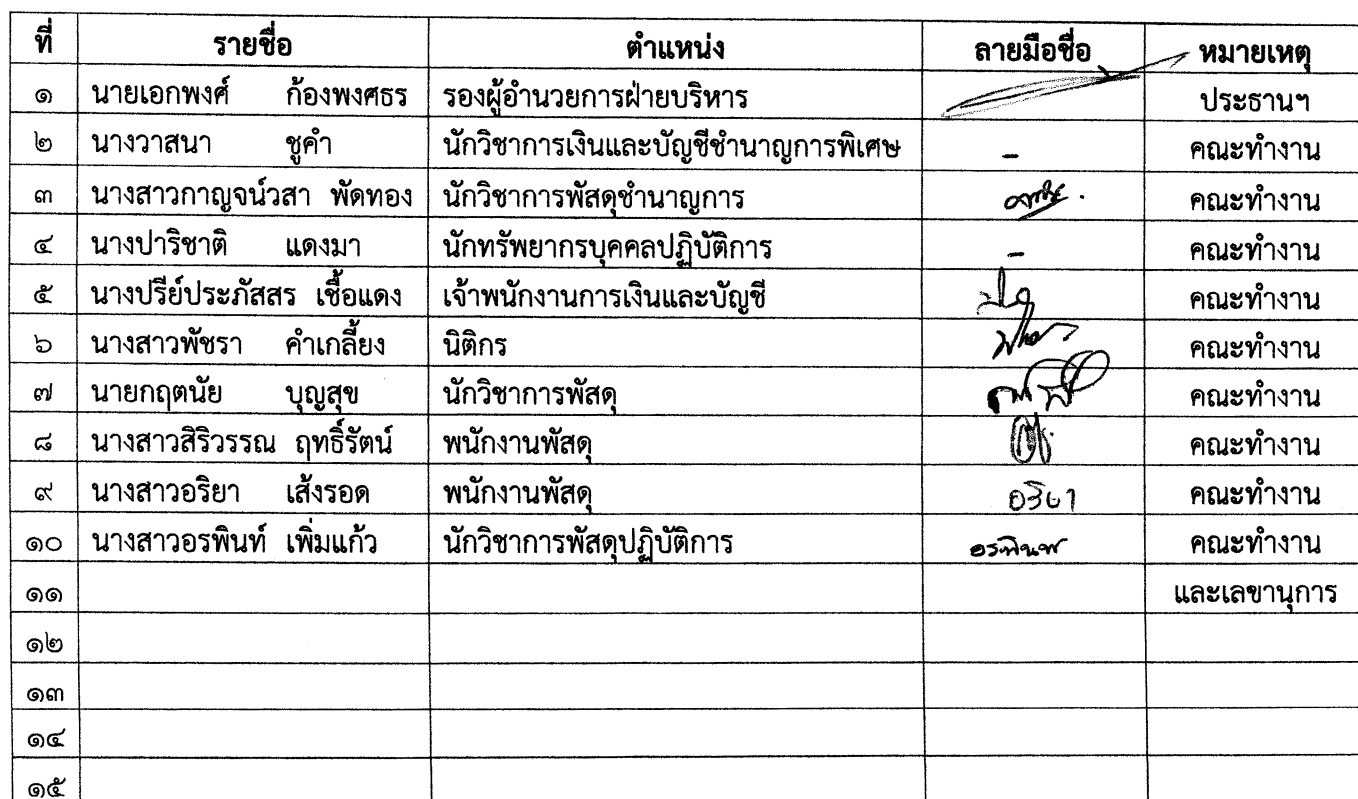 ที่ รายชื่อ ตำแหน่ง ลายมือชื่อ หมายเหตุ
๑ นายเอกพงศ์ ก้องพงศธร รองผู้อำนวยการฝ่ายบริหาร ประธานฯ
๒ นางวาสนา ชูคำ นักวิชาการเงินและบัญชีชำนาญการพิเศษ - คณะทำงาน
๓ นางสาวกาญจน์วสา พัดทอง นักวิชาการพัสดุชำนาญการ คณะทำงาน
๔ นางปาริชาติ แดงมา นักทรัพยากรบุคคลปฏิบัติการ - คณะทำงาน
๕ นางปรีย์ประภัสสร เชื้อแดง เจ้าพนักงานการเงินและบัญชี คณะทำงาน
๖ นางสาวพัชรา คำเกลี้ยง นิติกร คณะทำงาน
๗ นายกฤตนัย บุญสุข นักวิชาการพัสดุ คณะทำงาน
๘ นางสาวสิริวรรณ ฤทธิ์รัตน์ พนักงานพัสดุ คณะทำงาน
๙ นางสาวอริยา เส้งรอด พนักงานพัสดุ อริยา คณะทำงาน
๑๐ นางสาวอรพินท์ เพิ่มแก้ว นักวิชาการพัสดุปฏิบัติการ อรพินท์ คณะทำงาน
๑๑ และเลขานุการ
๑๒
๑๓
๑๔
๑๕